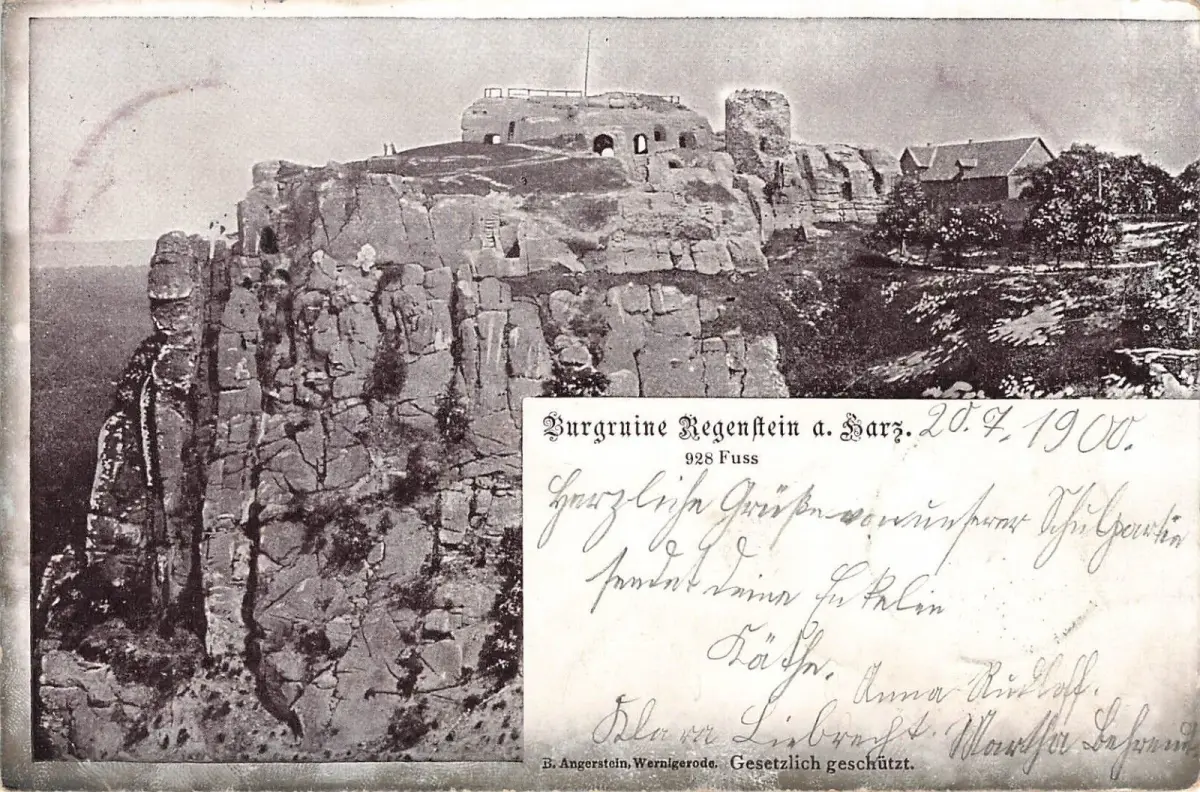 Burgruine Regenstein a. Harz. 20.7.1900.
928 Fuss
Herzliche Grüße von unserer Schulpartie
sendet deine Enkelin
Käthe.
Anna Rudloff.
Klara Liebrecht. Martha Behrend
B. Angerstein, Wernigerode. Gesetzlich geschützt.